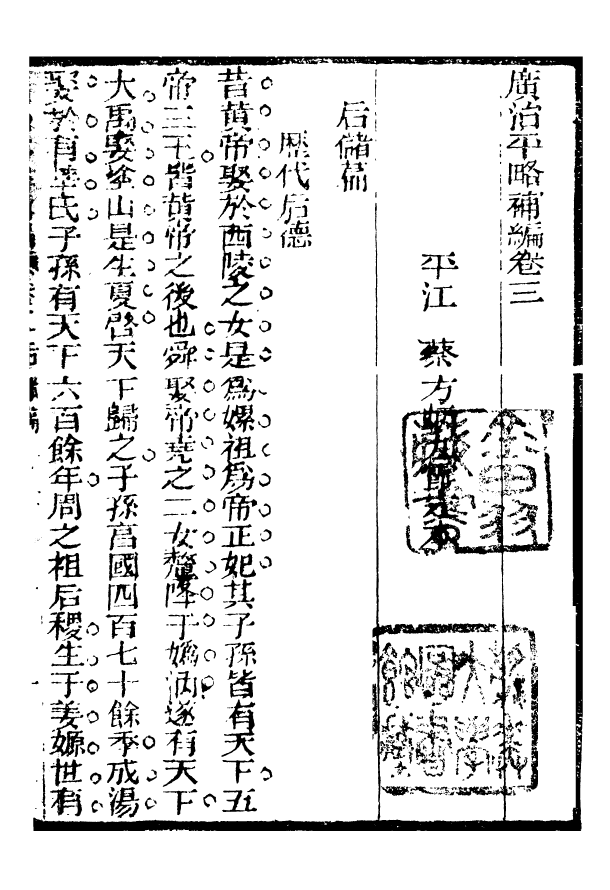 廣治平略補編卷三
平江 蔡方炳九霞
后儲篇
歷代后德
昔黃帝娶於西陵之女是爲嫘祖爲帝正妃其子孫皆有天下五
帝三王皆黃帝之後也舜娶帝堯之二女釐降于嬀汭遂有天下
大禹娶塗山是生夏啓天下歸之子孫享國四百七十餘年成湯
娶於有㜪氏子孫有天下六百餘年周之祖后稷生于姜嫄世有